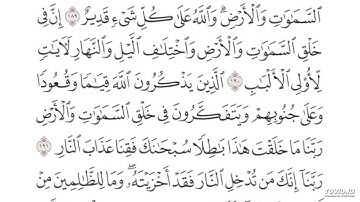 ٱلسَّمَٰوَٰتِ وَٱلْأَرْضِ ۗ وَٱللَّهُ عَلَىٰ كُلِّ شَىْءٍ قَدِيرٌ ١٨٩ إِنَّ فِى
خَلْقِ ٱلسَّمَٰوَٰتِ وَٱلْأَرْضِ وَٱخْتِلَٰفِ ٱلَّيْلِ وَٱلنَّهَارِ لَءَايَٰتٍ
لِّأُو۟لِى ٱلْأَلْبَٰبِ ١٩٠ ٱلَّذِينَ يَذْكُرُونَ ٱللَّهَ قِيَٰمًا وَقُعُودًا
وَعَلَىٰ جُنُوبِهِمْ وَيَتَفَكَّرُونَ فِى خَلْقِ ٱلسَّمَٰوَٰتِ وَٱلْأَرْضِ
رَبَّنَا مَا خَلَقْتَ هَٰذَا بَٰطِلًا سُبْحَٰنَكَ فَقِنَا عَذَابَ ٱلنَّارِ ١٩١
رَبَّنَآ إِنَّكَ مَن تُدْخِلِ ٱلنَّارَ فَقَدْ أَخْزَيْتَهُۥ ۖ وَمَا لِلظَّٰلِمِينَ مِنْ
TOVID.IO